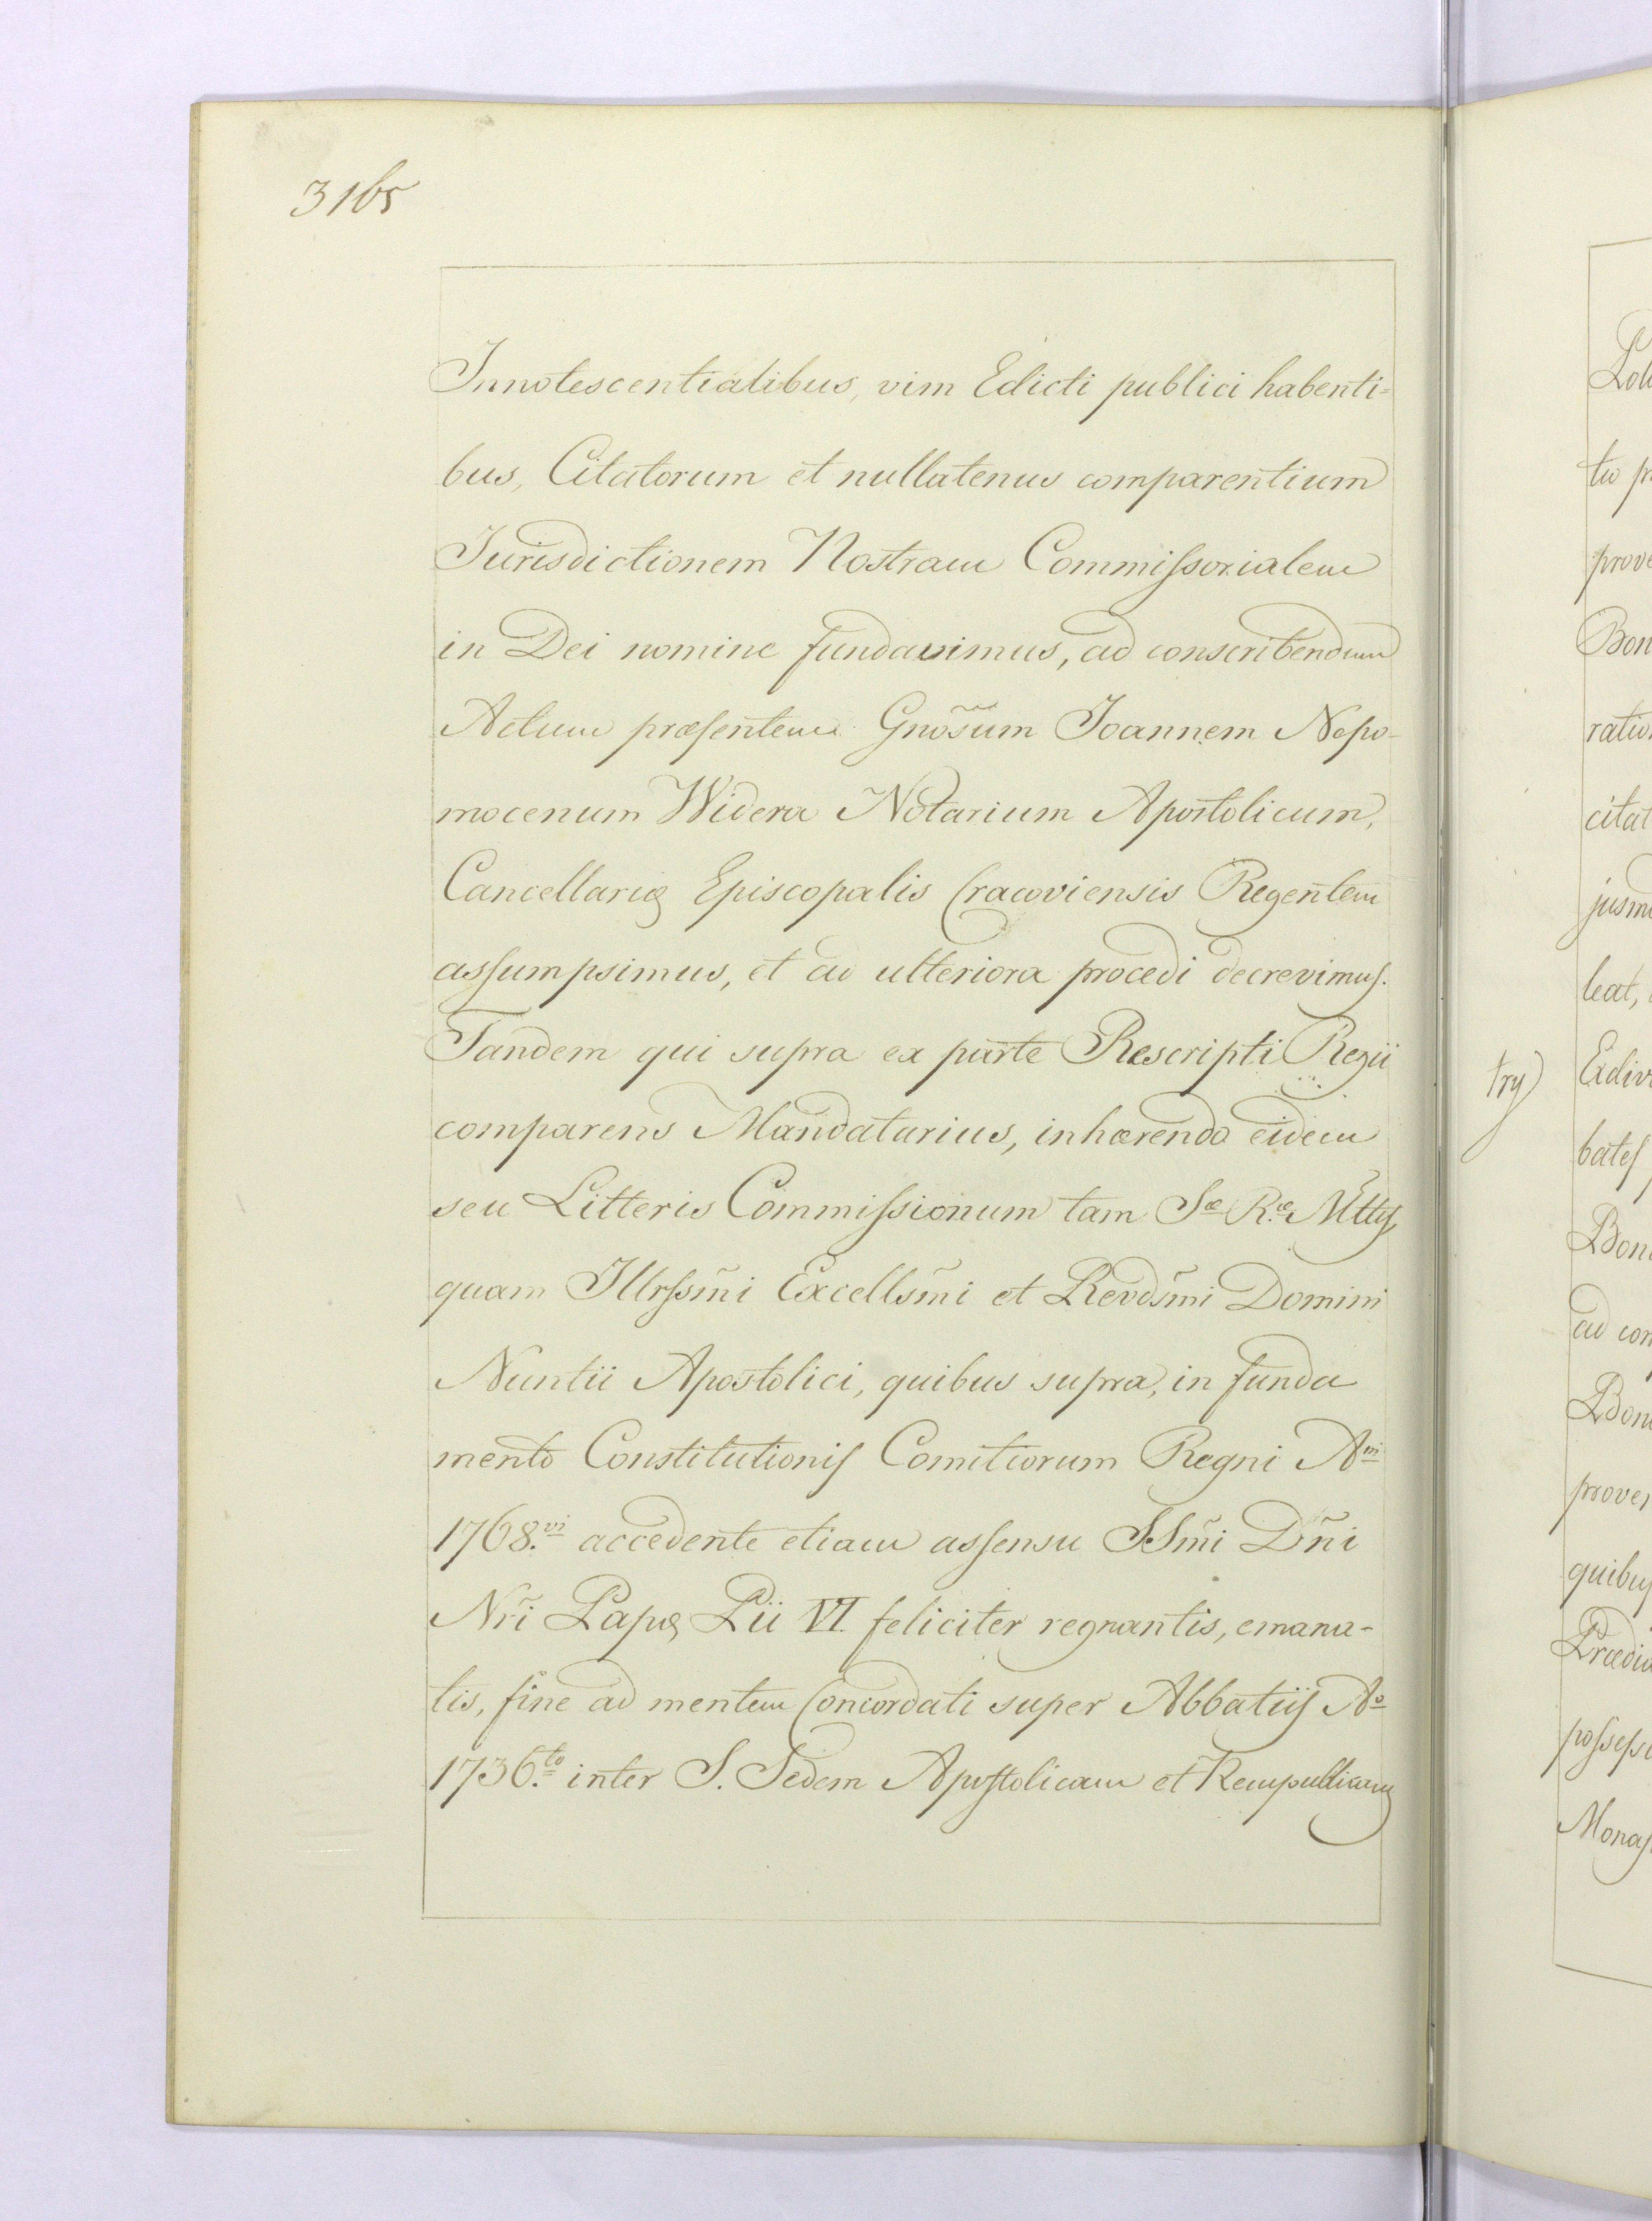 3165
Innotescentialibus, vim Edicti publici habenti=
bus, Citatorum et nullatenus comparentium
Jurisdictionem Nostram Commiſsorialem
in Dei nomine fundavimus, ad conscribendum
Actum præsentem Gnõsum Joannem Nepo-
mocenum Widera Notarium Apostolicum,
Cancellariæ Episcopalis Cracoviensis Regentem
aſsumpsimus, et ad ulteriora procedi decrevimus.
Tandem qui supra ex parte Rescripti Regii
comparens Mandatarius, inhærendo eidem
seu Litteris Commiſsionum tam Sæ Ræ Mttis
quam Illrſsm̃i Excellsm̃i et Revdsm̃i Domini
Nuntii Apostolici, quibus supra, in funda
mento Constitutionis Comitiorum Regni Ani
1768.vi accedente etiam aſsensu SSm̃i Dñi
Nrĩ Papæ Pii VI feliciter regnantis, emana-
tis, fine ad mentem Concordati super Abbatiis Ao
1736.to inter S. Sedem Apostolicam et Rempublicam
try)
tu
Bon
ratio
citat
leat,
Bon
ad con
Bon
quibus
Prædia